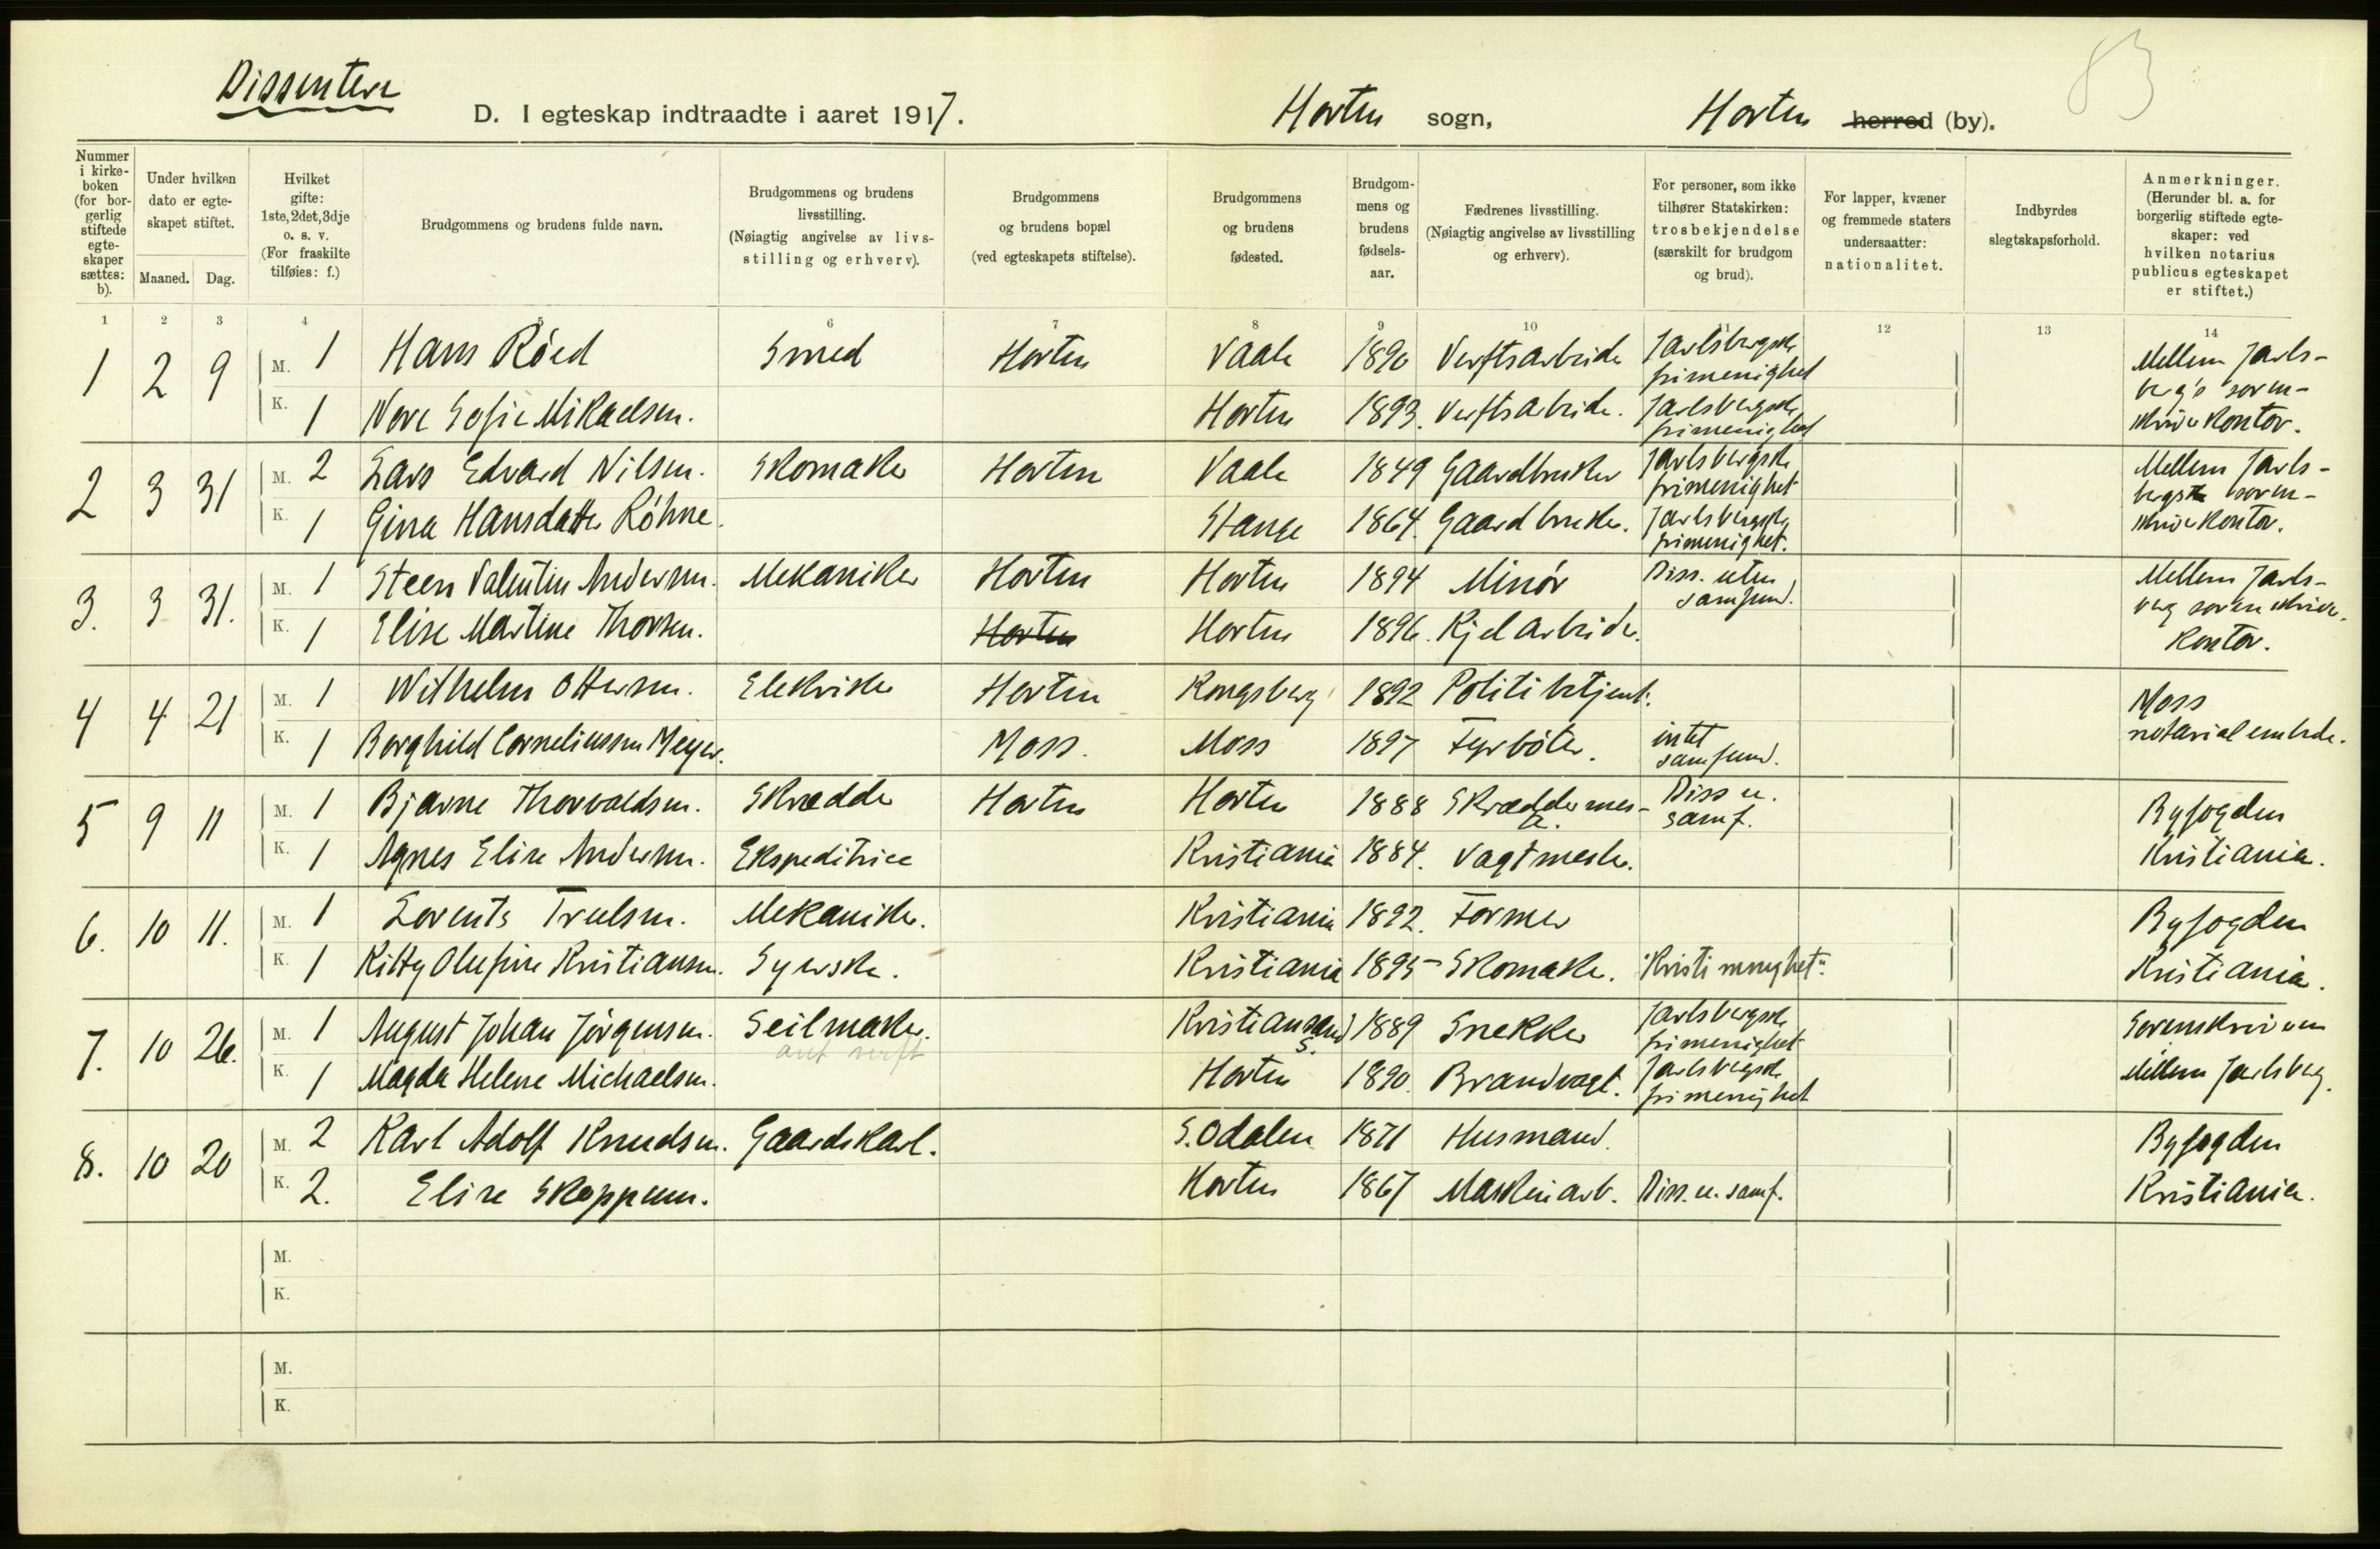 Dissentere
83
D. I egteskap indtraadte i aaret 1917. Horten sogn, Horten herred (by).
Nummer i kirkeboken (for borgerlig stiftede egteskaper sættes: b).
Under hvilken dato er egteskapet stiftet.
Maaned. Dag.
Hvilket gifte: 1ste, 2det, 3dje o. s. v. (For fraskilte tilføies: f.)
Brudgommens og brudens fulde navn.
Brudgommens og brudens livsstilling. (Nøiagtig angivelse av livsstilling og erhverv).
Brudgommens og brudens bopæl (ved egteskapets stiftelse).
Brudgommens og brudens fødested.
Brudgommens og brudens fødselsaar.
Fædrenes livsstilling. (Nøiagtig angivelse av livsstilling og erhverv).
For personer, som ikke tilhører Statskirken: trosbekjendelse (særskilt for brudgom og brud).
For lapper, kvæner og fremmede staters undersaatter: nationalitet.
Indbyrdes slegtskapsforhold.
Anmerkninger. (Herunder bl. a. for borgerlig stiftede egteskaper: ved hvilken notarius publicus egteskapet er stiftet.)
1 2 3 4 5 6 7 8 9 10 11 12 13 14
1 2 9 M. 1 Hans Röed Smed Horten Vaale 1890 Verftsarbeider Jarlsbergske frimenighet Mellem Jarlsberg's sorenskriverkontor.
K. 1 Nore Sofie Mikaelsen. Horten 1893. Verftsarbeider. Jarlsbergske frimenighet
2 3 31 M. 2 Lars Edvard Nilsen. Skomaker Horten Vaale 1849 Gaardbruker Jarlsbergske frimenighet Mellem Jarlsbergske sorenskriverkontor.
K. 1 Gina Hansdatter Röhne. Stange 1864. Gaardbruker. Jarlsbergske frimenighet.
3. 3 31. M. 1 Steen Valentin Andersen. Mekaniker Horten Horten 1894 Minör Diss. uten samfund. Mellem Jarlsberg sorenskriver kontor.
K. 1 Elise Martine Thorsen. Horten Horten 1896. Kjelarbeider.
4 4 21 M. 1 Wilhelm Ottersen. Elekriker Horten Kongsberg 1892 Politibetjent. Moss notarialembede.
K. 1 Borghild Corneliussen Meyer. Moss. Moss 1897 Fyrböter. intet samfund.
5 9 11 M. 1 Bjarne Thorvaldsen. Skrædder Horten Horten 1888 Skræddermester. Diss u. samf. Byfogden Kristiania.
K. 1 Agnes Elise Andersen. Ekspeditrice Kristiania 1884. Vagtmester.
6. 10 11. M. 1 Lorents Truelsen. Mekaniker. Kristiania 1892. Former Byfogden Kristiania.
K. 1 Kitty Olufine Kristiansen. Syerske. Kristiania 1895 Skomaker. "Kristi menighet".
7. 10 26. M. 1 August Johan Jörgensen. Seilmaker. Kristiansand S. 1889 Snekker Jarlsbergske frimenighet Sorenskriveren Mellem Jarlsberg.
K. 1 Magda Helene Michaelsen. Horten 1890. Brandvagt. Jarlsbergske frimenighet
8. 10 20 M. 2 Karl Adolf Knudsen. Gaardskarl. S. Odalen 1871 Husmand. Byfogden Kristiania.
K. 2. Elise Skoppum. Horten 1867 Maskinarb. Diss. u. samf.
M.
K.
M.
K.